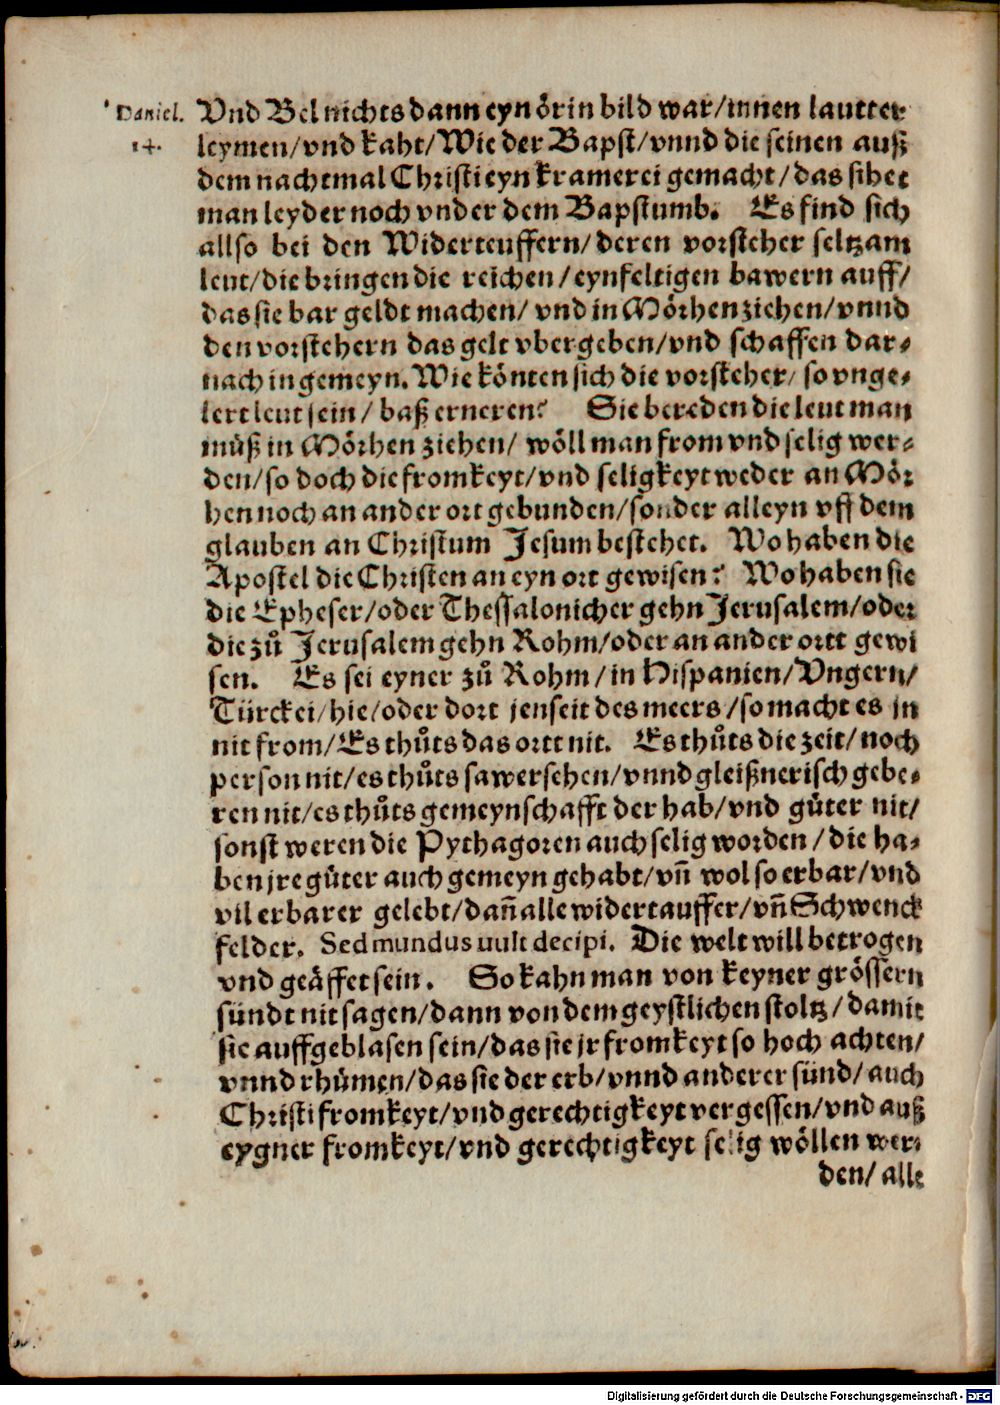 Daniel.
14.
Vnd Bel nichts dann eyn örin bild war/innen lautter
leymen/vnd kaht/Wie der Bapst/vnnd die seinen auß
dem nachtmal Christi eyn kramerei gemacht/das sihet
man leyder noch vnder dem Bapstumb. Es find sich
allso bei den Widerteuffern/deren vorsteher seltzam
leut/die bringen die reichen/eynfeltigen bawern auff/
das sie bar geldt machen/vnd in Mörhen ziehen/vnnd
den vorstehern das gelt vbergeben/vnd schaffen dar⸗
nach in gemeyn. Wie könten sich die vorsteher/so vnge⸗
lert leut sein/baß erneren? Sie bereden die leut man
müß in Mörhen ziehen/wöll man from vnd selig wer⸗
den/so doch die fromkeyt/vnd seligkeyt weder an Mör
hen noch an ander ort gebunden/sonder alleyn vff dem
glauben an Christum Jesum bestehet. Wo haben die
Apostel die Christen an eyn ort gewisen? Wo haben sie
die Epheser/oder Thessalonicher gehn Jerusalem/oder
die zů Jerusalem gehn Rohm/oder an ander ortt gewi
sen. Es sei eyner zů Rohm/in Hispanien/Vngern/
Türckei/hie/oder dort jenseit des meers/so macht es jn
nit from/Es thůts das ortt nit. Es thůts die zeit/noch
person nit/es thůts sawersehen/vnnd gleißnerisch gebe⸗
ren nit/es thůts gemeynschafft der hab/vnd gůter nit/
sonst weren die Pythagoren auch selig worden/die ha⸗
ben jre gůter auch gemeyn gehabt/vñ wol so erbar/vnd
vil erbarer gelebt/dañ alle widertauffer/vñ Schwenck
felder. Sed mundus uult decipi. Die welt will betrogen
vnd geäffet sein. So kahn man von keyner grössern
sündt nit sagen/dann von dem geystlichen stoltz/damit
sie auffgeblasen sein/das sie jr fromkeyt so hoch achten/
vnnd rhümen/das sie der erb/vnnd anderer sünd/auch
Christi fromkeyt/vnd gerechtigkeyt vergessen/vnd auß
eygner fromkeyt/vnd gerechtigkeyt selig wöllen wer⸗
den/alle
Digitalisierung gefördert durch die Deutsche Forschungsgemeinschaft - DFG